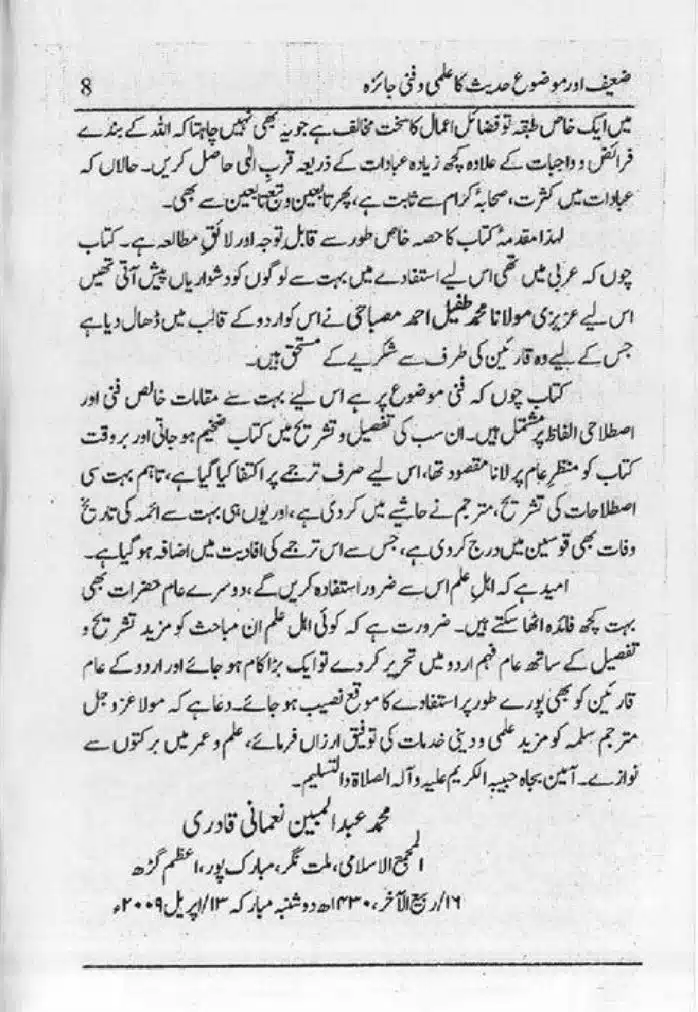 ضعیف اور موضوع حدیث کا علمی و فنی جائزہ 8
میں ایک خاص طبقہ تو فضائل اعمال کا سخت مخالف ہے جو یہ بھی نہیں چاہتا کہ اللہ کے بندے
فرائض و واجبات کے علاوہ کچھ زیادہ عبادات کے ذریعہ قربِ الٰہی حاصل کریں۔ حالاں کہ
عبادات میں کثرت، صحابۂ کرام سے ثابت ہے، پھر تابعین و تبع تابعین سے بھی۔
لہٰذا مقدمۂ کتاب کا حصہ خاص طور سے قابلِ توجہ اور لائقِ مطالعہ ہے۔ کتاب
چوں کہ عربی میں تھی اس لیے استفادے میں بہت سے لوگوں کو دشواریاں پیش آتی تھیں
اس لیے عزیزی مولانا محمد طفیل احمد مصباحی نے اس کو اردو کے قالب میں ڈھال دیا ہے
جس کے لیے وہ قارئین کی طرف سے شکریے کے مستحق ہیں۔
کتاب چوں کہ فنی موضوع پر ہے اس لیے بہت سے مقامات خالص فنی اور
اصطلاحی الفاظ پر مشتمل ہیں۔ ان سب کی تفصیل و تشریح میں کتاب ضخیم ہو جاتی اور بر وقت
کتاب کو منظرِ عام پر لانا مقصود تھا، اس لیے صرف ترجمے پر اکتفا کیا گیا ہے، تاہم بہت سی
اصطلاحات کی تشریح، مترجم نے حاشیے میں کر دی ہے، اور یوں ہی بہت سے ائمہ کی تاریخ
وفات بھی قوسین میں درج کر دی ہے، جس سے اس ترجمے کی افادیت میں اضافہ ہو گیا ہے۔
امید ہے کہ اہلِ علم اس سے ضرور استفادہ کریں گے، دوسرے عام حضرات بھی
بہت کچھ فائدہ اٹھا سکتے ہیں۔ ضرورت ہے کہ کوئی اہل علم ان مباحث کو مزید تشریح و
تفصیل کے ساتھ عام فہم اردو میں تحریر کر دے تو ایک بڑا کام ہو جائے اور اردو کے عام
قارئین کو بھی پورے طور پر استفادے کا موقع نصیب ہو جائے۔ دعا ہے کہ مولا عز و جل
مترجم سلمہ کو مزید علمی و دینی خدمات کی توفیق ارزاں فرمائے، علم و عمر میں برکتوں سے
نوازے۔ آمین بجاہ حبیبہ الکریم علیہ و آلہ الصلاۃ والتسلیم۔
محمد عبد المبین نعمانی قادری
المجمع الاسلامی، ملت نگر، مبارک پور، اعظم گڑھ
۱۶/ ربیع الآخر، ۱۴۳۰ھ دوشنبہ مبارکہ ۱۳/ اپریل ۲۰۰۹ء